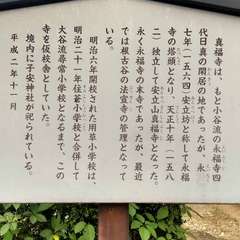 真福寺は、もと小谷流の永福寺四
代日真の閑居の地であったが、永
七年(一五六四)安立坊と称して永福
寺の塔頭となり、天正十年(一五八
二)独立して安立山真福寺となった。
永く永福寺の末寺であったが、最近
では根古谷の法宣寺の管理となって
いる。
明治六年開校された用草小学校は、
明治二十一年住釜小学校と合併して
大谷流尋常小学校となるまで、この
寺を仮校舎としていた。
境内に子安神社が祀られている。
平成二年十一月